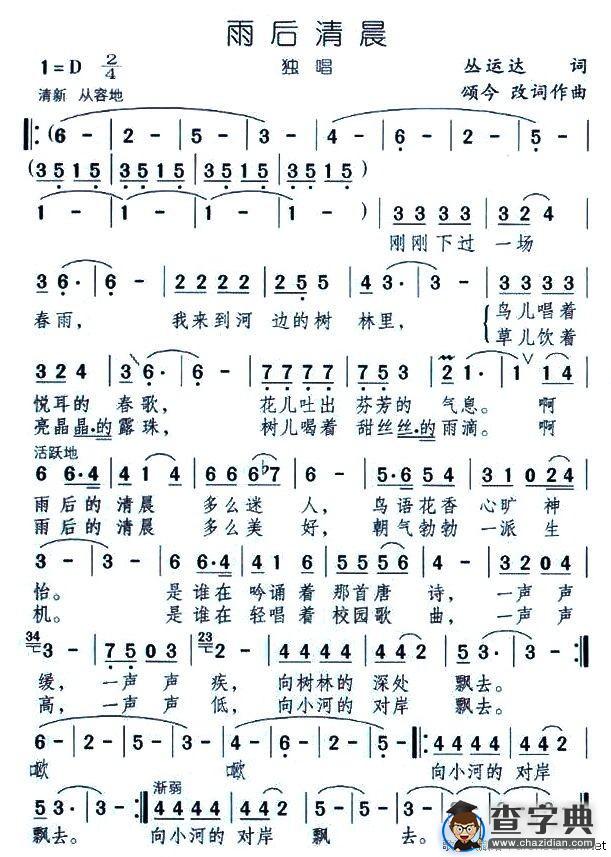 雨后清晨
1=D 2/4 独唱 丛运达 词
清新 从容地 颂今 改词作曲
‖: (6̣ - | 2 - | 5̣ - | 3 - | 6̣ - | 2 - | 5̣ - |
(3 5 1 5 | 3 5 1 5 | 3 5 1 5 | 3 5 1 5 | 3 5 1 5 | 3 5 1 5 |
1 - | 1 - | 1 - | 1 - ) | 3 3 3 3 | 3 2 4 |
刚刚下过 一场
3 6· | 6 - | 2 2 2 2 | 2 2 5 | 4 3· | 3 - | 3 3 3 3 |
春雨， 我来到河 边的树 林里， 鸟儿唱着
草儿饮着
3 2 4 | 3 6· | 6 - | 7 7 7 7 | 7 5 3 | 2 1· | 1 1 4 |
悦耳的 春歌， 花儿吐出 芬芳的 气息。 啊
亮晶晶·的 露珠， 树儿喝着 甜丝丝·的 雨滴。 啊
活跃地
6 6·4 | 2 4 - | 6 6 6 ♭7 | 6 - | 5·6 5 4 | 3 1 0 2 4 |
雨后的 清晨 多么迷 人， 鸟语花香 心旷 神
雨后的 清晨 多么美 好， 朝气勃勃 一派 生
3 - | 3 - | 6 6·4 | 2 4 6 | 5 5 5 6 | 5 - | 3 2 1 0 |
怡。 是谁在 吟诵着 那首唐 诗， 一声声
机。 是谁在 轻唱着 校园歌 曲， 一声声
34 3 - | 7 5 0 3 | 23 2 - | 4 4 4 4 | 4 4 2 | 5 3· | 3 - :‖
缓， 一声声 疾， 向树林的 深处 飘去。
高， 一声声 低， 向小河的 对岸 飘去。
6 - | 2 - | 5 - | 3 - | 6 - | 2 - | 5 - ‖: 4 4 4 4 | 4 4 2 |
噷 噷 向小河的 对岸
渐弱
5 3· | 3 - :‖ 4 4 4 4 | 4 4 2 | 5 - | 5 - | 3 - | 3
飘去。 向小河的 对岸 飘 去。
查字典
www.chazidian.com